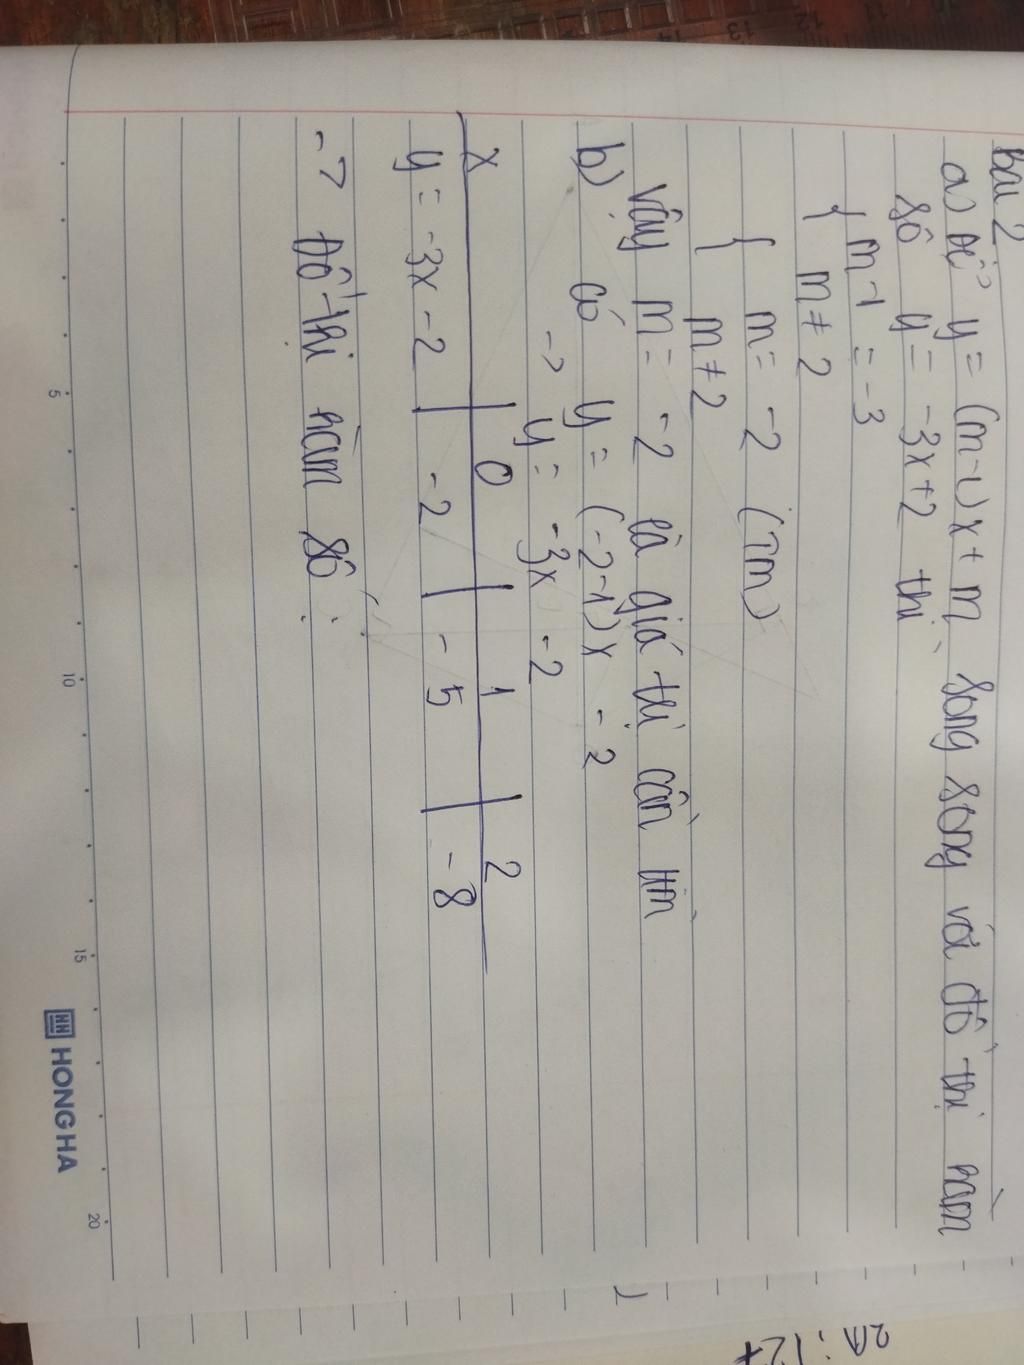 bài 2
a) để y = (m-1)x + m song song với đồ thị hàm
số y = -3x+2 thì
{ m-1 = -3
{ m ≠ 2
{ m = -2 (TM)
{ m ≠ 2
Vậy m = -2 là giá trị cần tìm
b) có y = (-2-1)x - 2
-> y = -3x - 2
x 0 1 2
y = -3x - 2 -2 -5 -8
-> Đồ thị hàm số :
5 10 15 20
HONG HA